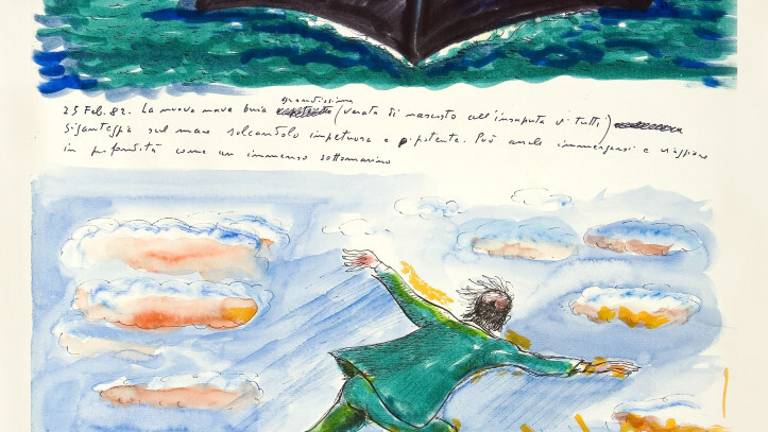 grandissima
25 Feb. 82. La nuova nave buia (varata di nascosto all'insaputa di tutti)
giganteggia sul mare solcandolo impetuosa e potente. Può anche immergersi e viaggiare
in profondità come un immenso sottomarino